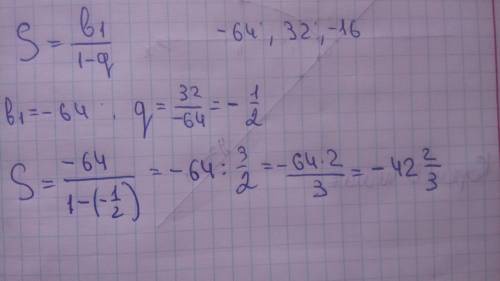 S = b₁/(1-q)    -64; 32; -16
b₁ = -64; q = 32/-64 = - 1/2
S = -64/(1-(-1/2)) = -64 : 3/2 = -64·2/3 = - 42 2/3